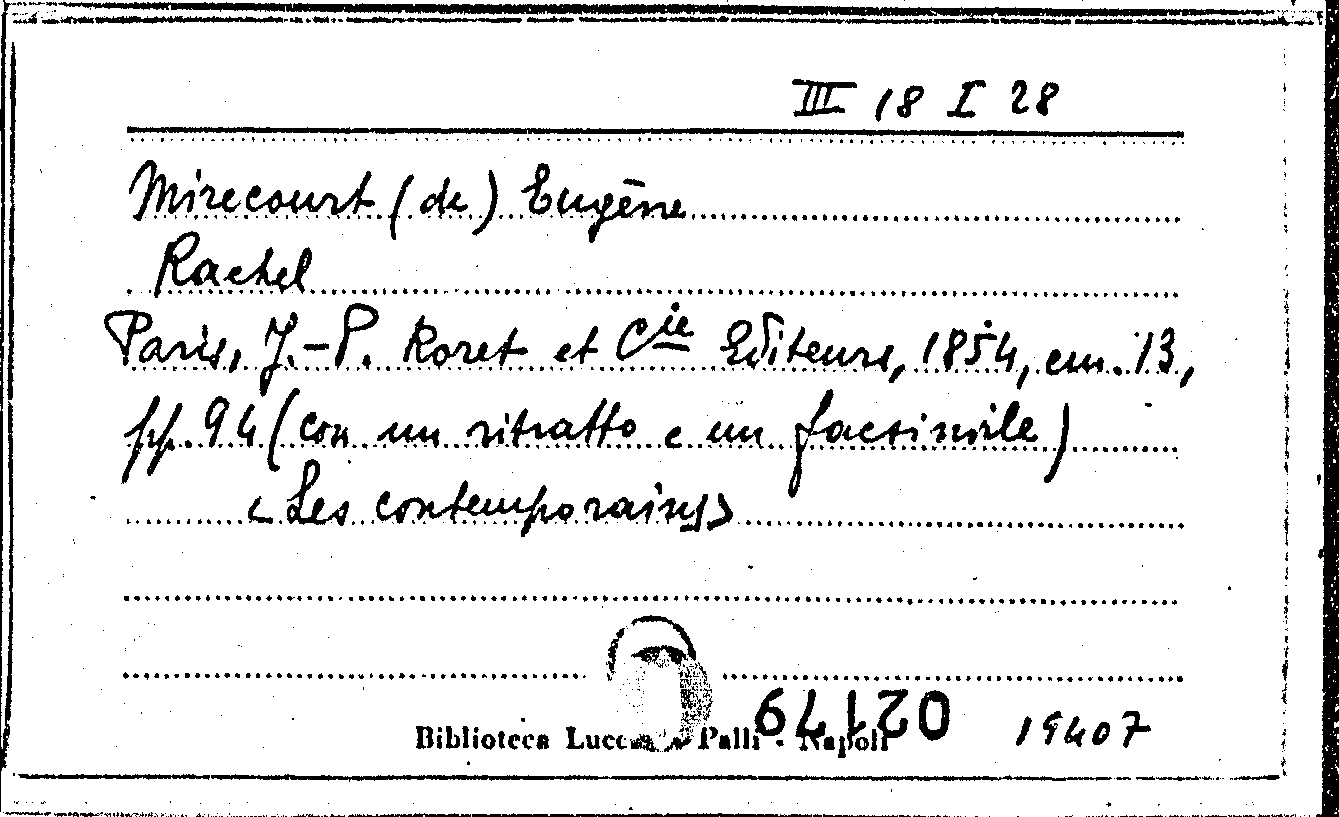 III 18 I 28
Mirecourt (de) Eugène
Rachel
Paris, J.-P. Roret et Cie Editeurs, 1854, cm. 13,
pp. 94 (con un ritratto e un facsimile)
<Les contemporains>
Biblioteca Lucchesi Palli - Napoli
19407